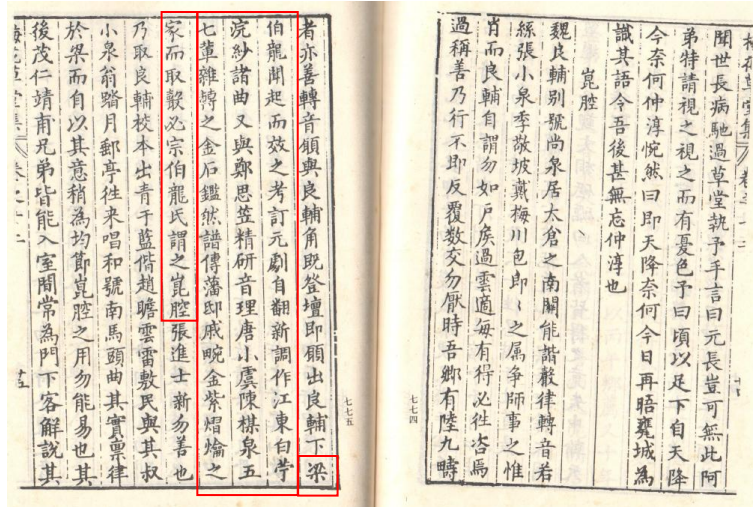 梅花草堂集 卷之十二
聞世長病馳過草堂執予手言曰元長豈可無此阿
弟特請視之視之而有憂色予曰頃以足下自天降
今奈何仲淳惋然曰即天降奈何今日再晤甕城為
識其語今吾後甚無忘仲淳也
崑腔
魏良輔別號尚泉居太倉之南關能諧聲律轉音若
絲張小泉季敬坡戴梅川包郎〻之属争師事之惟
肖而良輔自謂勿如户侯過雲適每有得必徃咨焉
過稱善乃行不即反覆数交勿厭時吾鄉有陸九疇
七七四
者亦善轉音願與良輔角既登壇即願出良輔下梁
伯龍聞起而效之考訂元劇自翻新調作江東白苧
浣紗諸曲又與鄭思笠精研音理唐小虞陳楳泉五
七軰雜轉之金石鏗然譜傳藩邸戚畹金紫熠爚之
家而取聲必宗伯龍氏謂之崑腔張進士新勿善也
乃取良輔校本出青于藍偕趙瞻雲雷敷民與其叔
小泉翁踏月郵亭徃来唱和號南馬頭曲其實禀律
於梁而自以其意稍為均節崑腔之用勿能易也其
後茂仁靖甫兄弟皆能入室間常為門下客解說其
梅花草堂集 卷之十二
七七五